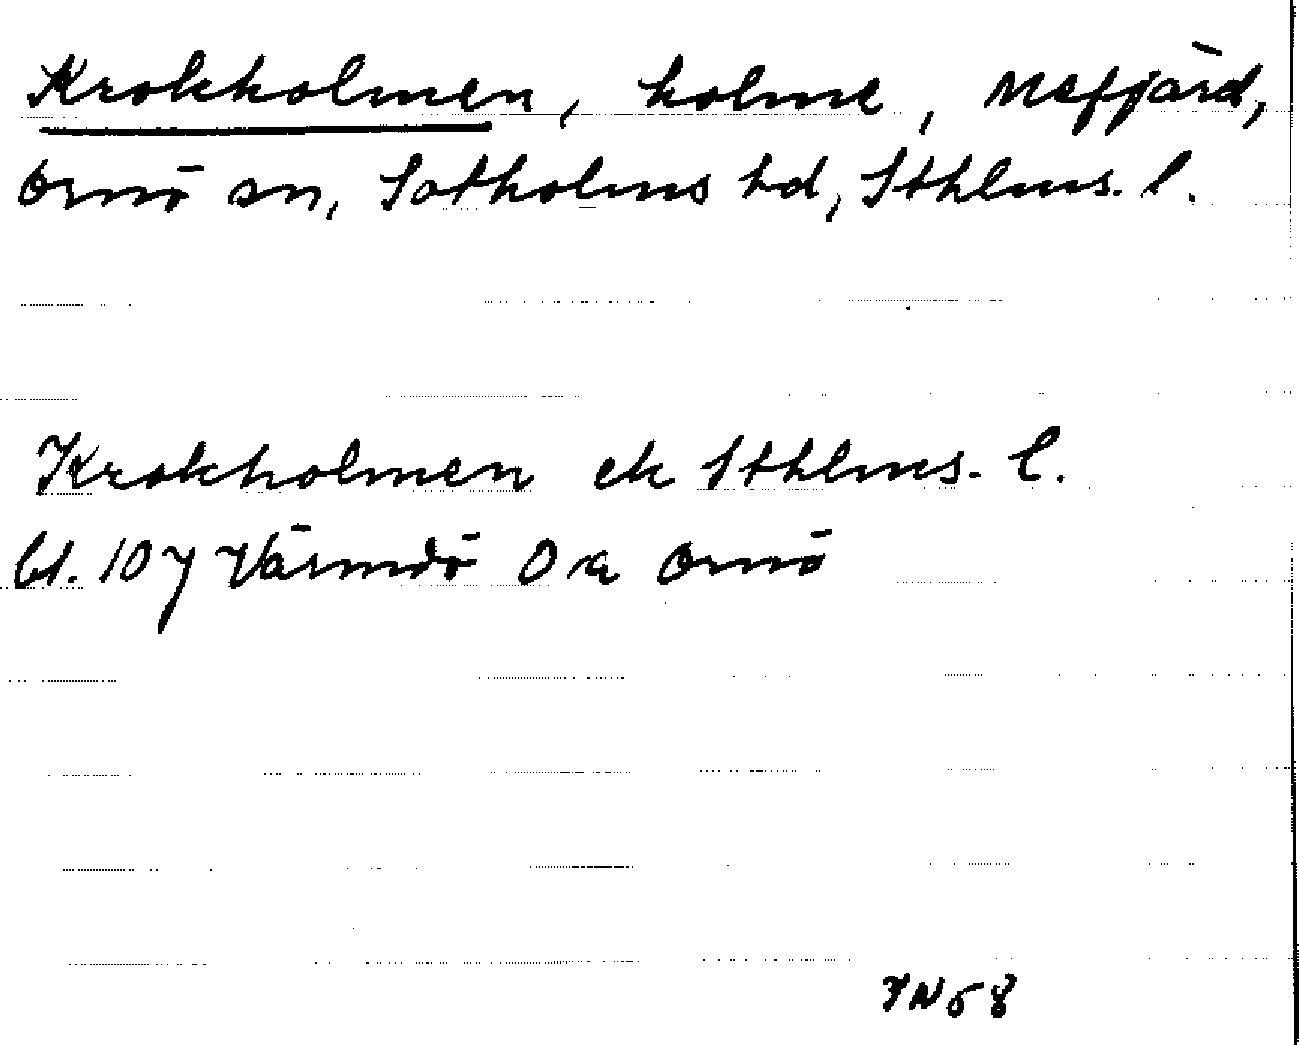 Krokholmen, holme, Mefjärd,
Ornö sn, Sotholms hd, Sthlms. l.
Krokholmen ek Sthlms. l.
bl. 107 Värmdö Ora Ornö
58